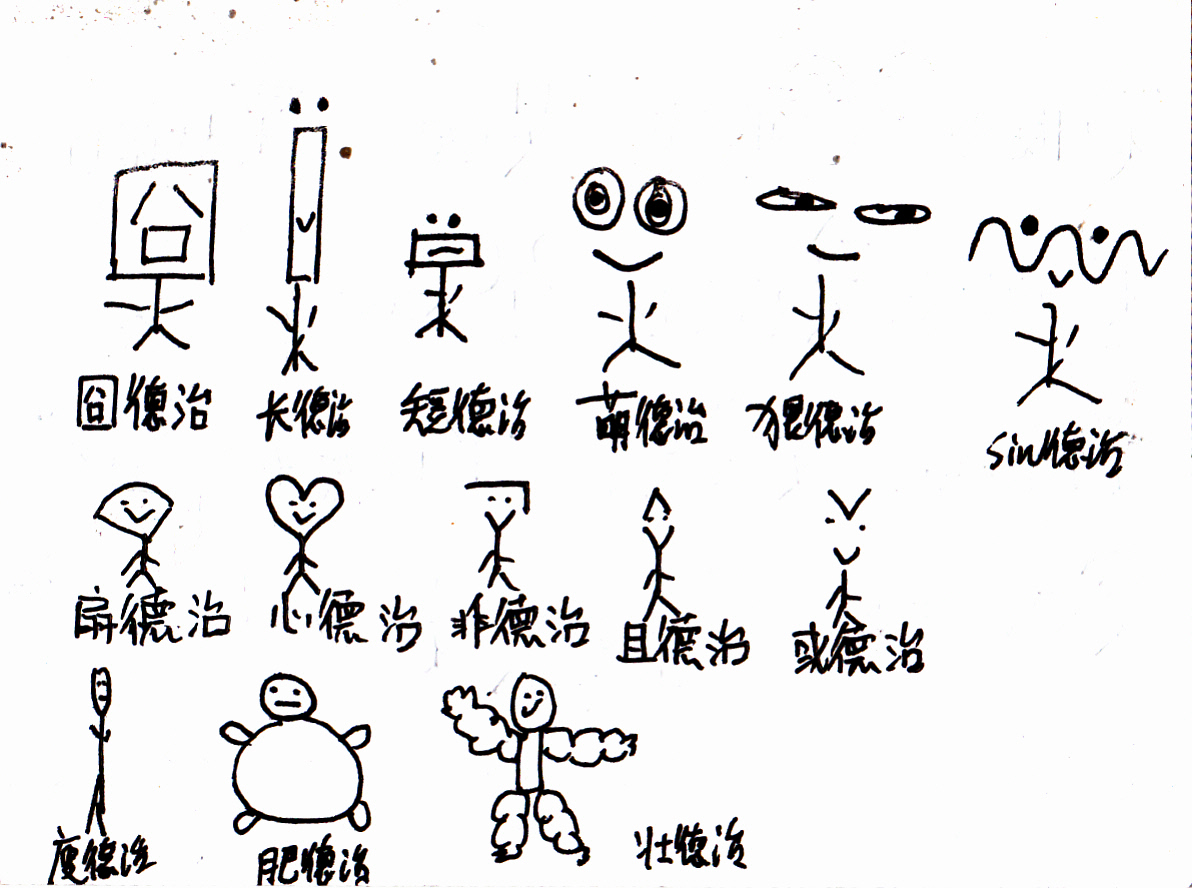 囧德治 长德治 短德治 萌德治 猥德治 sin德治
扇德治 心德治 非德治 且德治 或德治
瘦德治 肥德治 壮德治